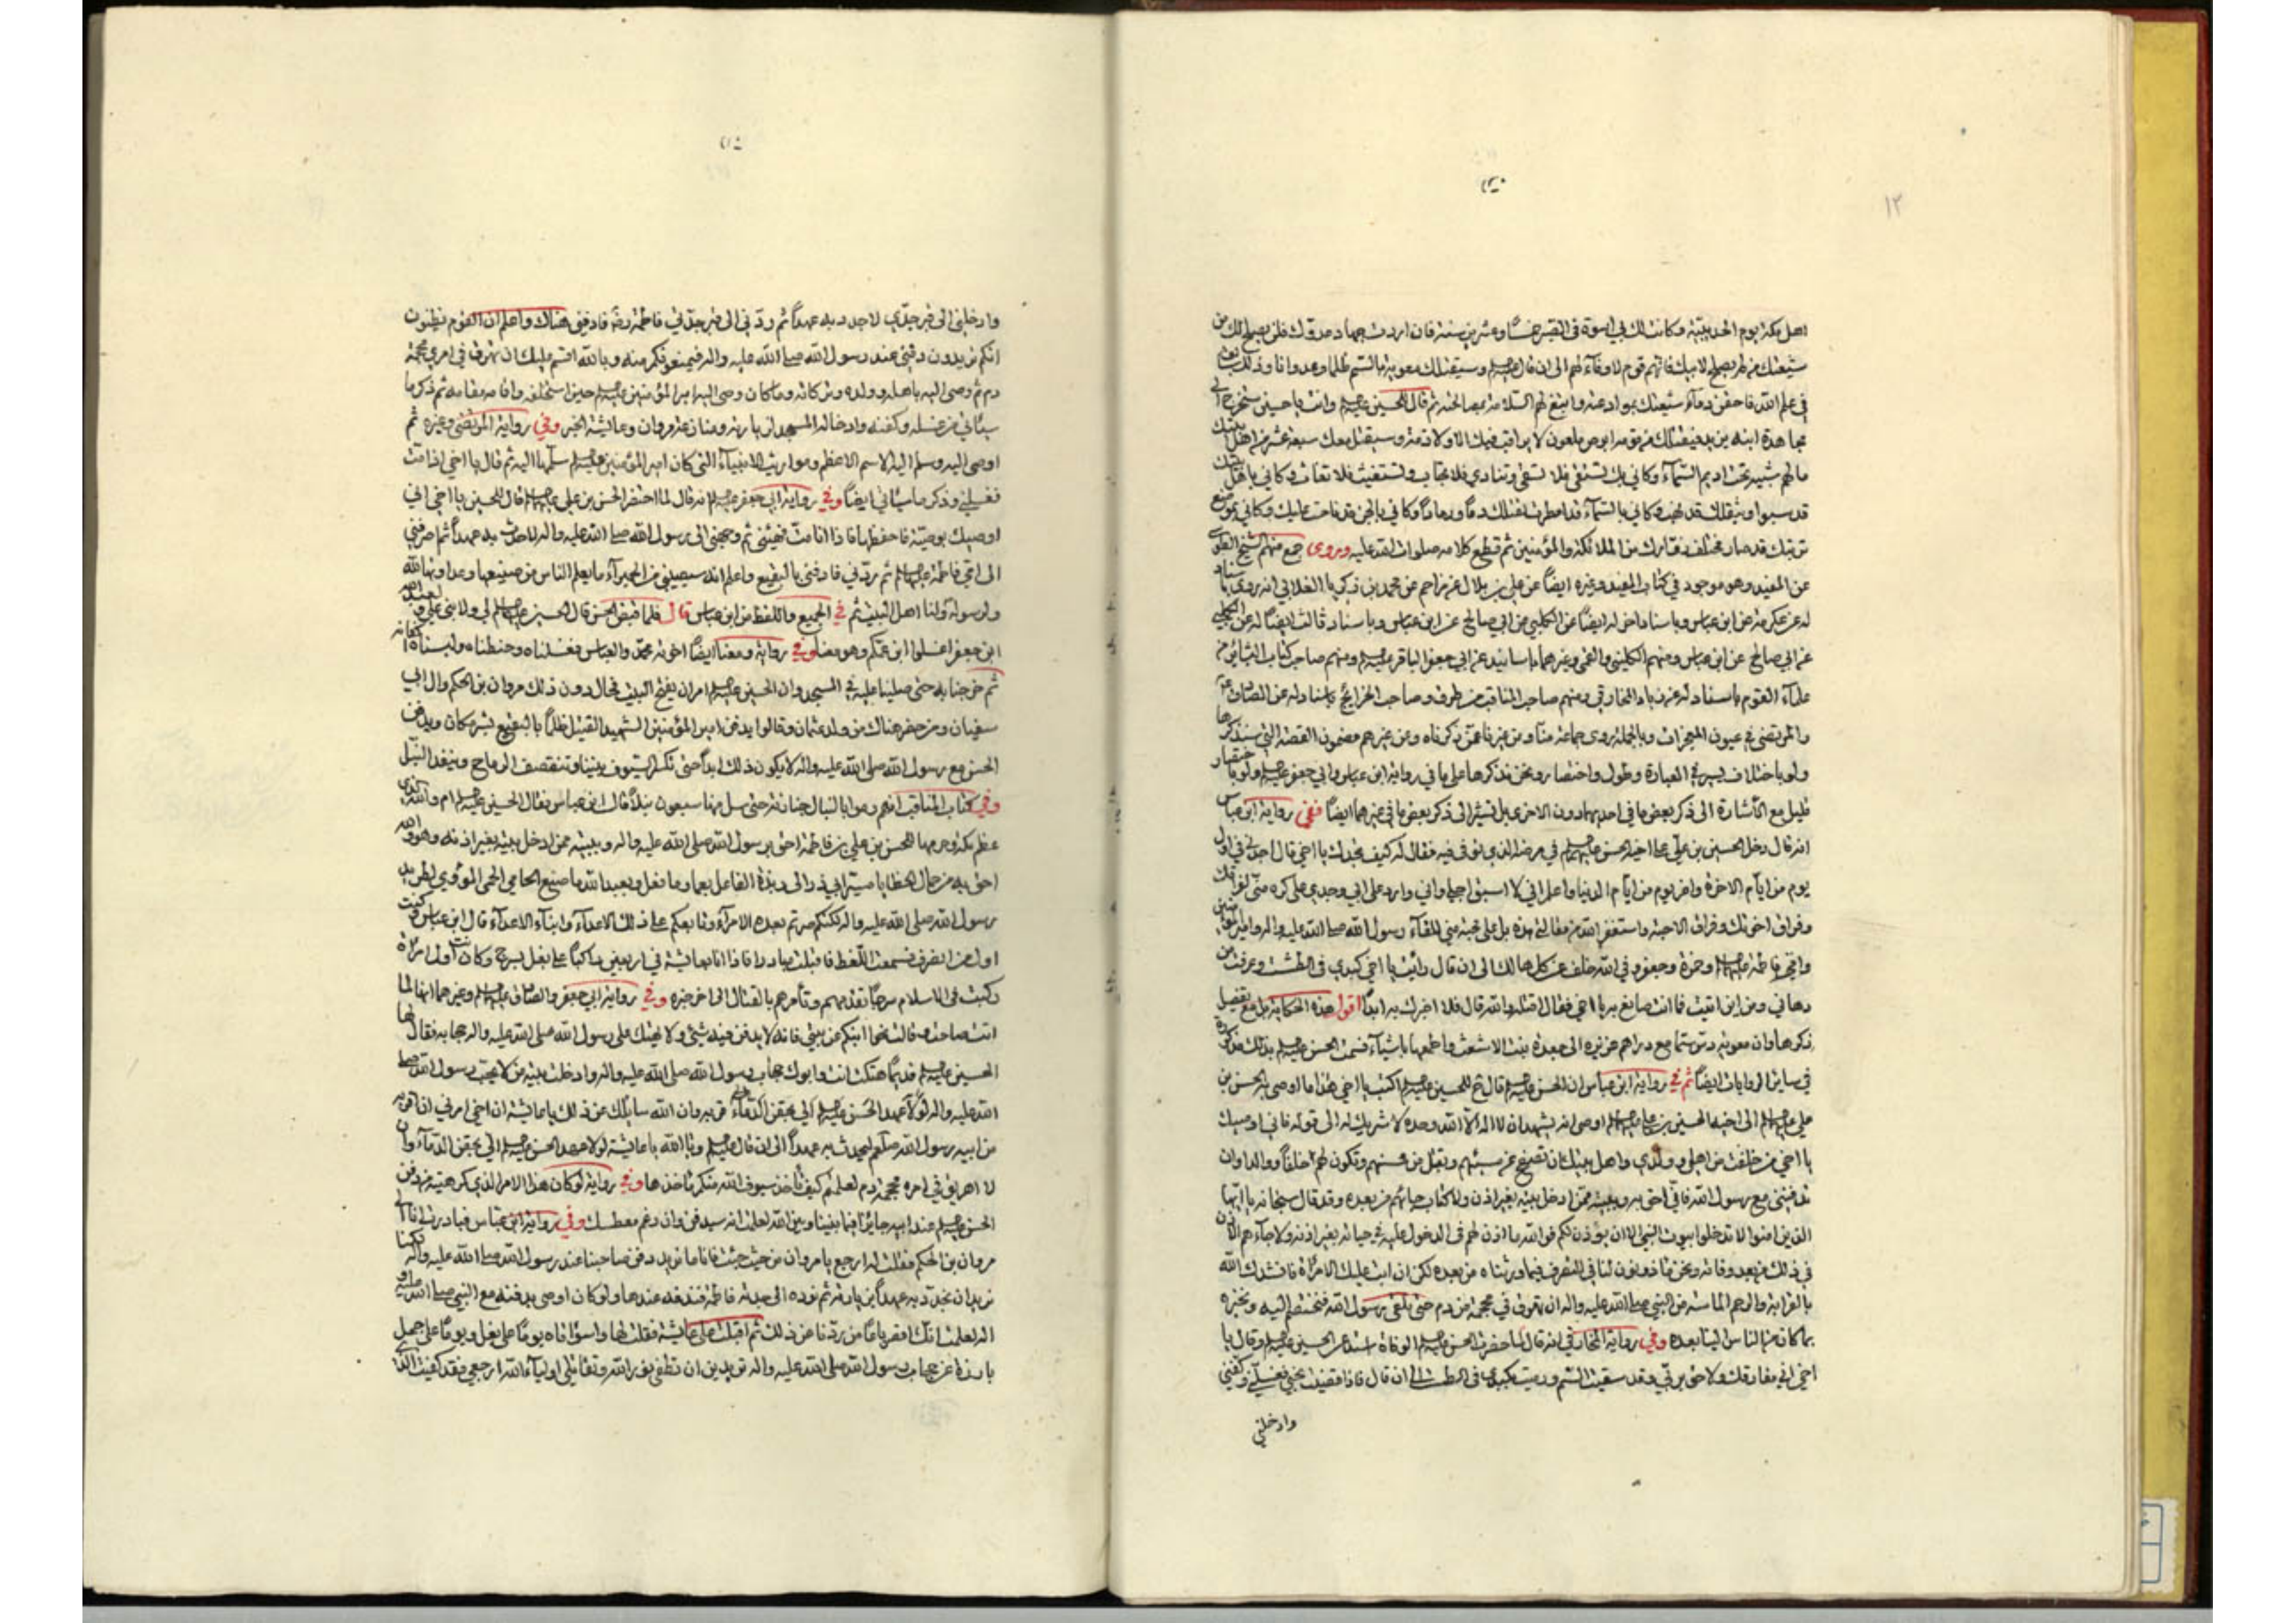 ١٢
اهل مكة يوم الحديبية وكانت لك بي اسوة في الصبر خمسا وعشرين سنة فان اردت جهاد عدوك فلن يصلح لك من
شيعتك من لم يصلح لابيك فانهم قوم لا وفاء لهم الى ان قال وسيقتلك معوية بالسم ظلما وعدوانا وذلك
في علم الله فاحقن دماء شيعتك بموادعته وابتغ لهم السلامة ثم قال للحسين وانت يا حسين ستخرج الى
مجاهدة ابنه يزيد فيقتلك من قومه ابرص ملعون لا يراقب فيك الا ولا ذمة وسيقتل معك سبعة عشر من اهل بيتك
ما لهم شبيه تحت اديم السماء وكاني بك تستسقي فلا تسقى وتنادي فلا تجاب وتستغيث فلا تغاث وكاني باهل بيتك
قد سبوا وبثقلك قد نهب وكاني بالسماء قد امطرت لقتلك دما ورمادا وكاني بالجن قد ناحت عليك وكاني بموضع
تربتك قد صار مختلف زوارك من الملائكة والمؤمنين ثم قطع كلامه صلوات الله عليه وروى جمع منهم الشيخ الطوسي
عن المفيد وهو موجود في كتاب المفيد وغيره ايضا عن علي بن بلال عن مزاحم عن محمد بن زكريا الغلابي انه روى باسناد
له عن عكرمة عن ابن عباس وباسناد اخر له ايضا عن الكلبي عن ابي صالح عن ابن عباس وباسناد ثالث ايضا له عن الكلبي
عن ابي صالح عن ابن عباس ومنهم الكليني والقمي وغيرهما باسانيد عن ابي جعفر الباقر ومنهم صاحب كتاب
علماء القوم باسناد له عن زياد المخارقي ومنهم صاحب المناقب من طرق وصاحب الخرائج باسناد له عن الصادق
والمرتضى في عيون المعجزات وبالجملة روى جماعة منا ومن غيرنا عمن ذكرناه وعن غيرهم مضمون القصة التي سنذكرها
ولو باختلاف يسير في العبارة وطول واختصار ونحن نذكرها على ما في رواية ابن عباس وابي جعفر ولو باختصار
قليل مع الاشارة الى ذكر بعض ما في احديهما دون الاخرى بل نشير الى ذكر بعض ما في غيرهما ايضا ففي رواية ابن عباس
انه قال دخل الحسين بن علي على اخيه الحسن في مرضه الذي توفي فيه فقال له كيف تجدك يا اخي قال اجدني في اول
يوم من ايام الاخرة واخر يوم من ايام الدنيا واعلم اني لا اسبق اجلي واني وارد على ابي وجدي على كره مني لفراقك
وفراق اخوتك وفراق الاحبة واستغفر الله من مقالتي هذه بل على محبة مني للقاء رسول الله صلى الله عليه واله وامير المؤمنين
وامي فاطمة وحمزة وجعفر وفي الله خلف من كل هالك الى ان قال رايت يا اخي كبدي في الطشت وعرفت من
دهاني ومن اين اتيت فما انت صانع به يا اخي فقال اقتله والله قال فلا اخبرك به ابدا اقول هذه الحكاية مع تفصيل
ذكرها وان معوية دس سما مع دراهم غزيرة الى جعدة بنت الاشعث واطمعها باشياء فسمت الحسن بذلك مذكورة
في ساير الروايات ايضا ثم في رواية ابن عباس ان الحسن قال للحسين اكتب يا اخي هذا ما اوصى به الحسن بن
علي الى اخيه الحسين بن علي اوصى انه يشهد ان لا اله الا الله وحده لا شريك له الى قوله فاني اوصيك
يا اخي من خلفت من اهلي وولدي واهل بيتك ان تصفح عن مسيئهم وتقبل من محسنهم وتكون لهم خلفا ووالدا وان
تدفنني مع رسول الله فاني احق به وببيته ممن ادخل بيته بغير اذن ولا كتاب جاءهم من بعده وقد قال سبحانه يا ايها
الذين امنوا لا تدخلوا بيوت النبي الا ان يؤذن لكم فوالله ما اذن لهم في الدخول عليه في حياته بغير اذنه ولا جاءهم الاذن
في ذلك من بعد وفاته ونحن ماذونون لنا في التصرف فيما ورثناه من بعده لكن ان ابت عليك الامراة فانشدك الله
بالقرابة والرحم الماسة من النبي صلى الله عليه واله ان تهرق في محجمة من دم حتى نلقى رسول الله فنختصم اليه ونخبره
بما كان من الناس الينا بعده وفي رواية المخارقي انه قال لما حضرت الحسن الوفاة استدعى الحسين وقال يا
اخي اني مفارقك ولاحق بربي وقد سقيت السم ورميت بكبدي في الطشت الى ان قال فاذا قضيت نحبي فغسلني وكفني
وادخلني
وادخلني الى قبر جدي لاجدد به عهدا ثم ردني الى قبر جدتي فاطمة فادفني هناك واعلم ان القوم يظنون
انكم تريدون دفني عند رسول الله صلى الله عليه واله فيمنعونكم منه وبالله اقسم عليك ان تهرق في امري محجمة
دم ثم وصى اليه باهله وولده وتركاته وما كان وصى اليه امير المؤمنين حين استخلفه واقامه مقامه ثم ذكر ما
سياتي من غسله وكفنه وادخاله المسجد ومنازعة مروان وعايشة الخبر وفي رواية المرتضى وغيره ثم
اوصى اليه وسلم اليه الاسم الاعظم ومواريث الانبياء التي كان امير المؤمنين سلمها اليه ثم قال يا اخي اذا مت
فغسلني وذكر ما سياتي ايضا وفي رواية ابي جعفر انه قال لما احتضر الحسن بن علي قال للحسين يا اخي اني
اوصيك بوصية فاحفظها فاذا انا مت فهيئني ثم وجهني الى رسول الله صلى الله عليه واله لاحدث به عهدا ثم اصرفني
الى امي فاطمة ثم ردني فادفني بالبقيع واعلم انه سيصيبني من الحميراء ما يعلم الناس من صنيعها وعداوتها لله
ولرسوله ولنا اهل البيت ثم في الجميع واللفظ من ابن عباس قال فلما قبض الحسن قال الحسين لي ولابني علي ولعبد الله
ابن جعفر اغسلوا ابن عمكم وهو معنا وفي رواية ومعنا ايضا اخوته محمد والعباس فغسلناه وحنطناه والبسناه اكفانه
ثم خرجنا به حتى صلينا عليه في المسجد وان الحسين امر ان يفتح البيت فحال دون ذلك مروان بن الحكم وال ابي
سفيان ومن حضر هناك من ولد عثمان وقالوا يدفن امير المؤمنين الشهيد القتيل ظلما بالبقيع بشر مكان ويدفن
الحسن مع رسول الله صلى الله عليه واله لا يكون ذلك ابدا حتى تكسر السيوف بيننا وتنقصف الرماح وينفد النبل
وفي كتاب المناقب انهم رموا بالنبال جنازته حتى سل منها سبعون نبلا قال ابن عباس فقال الحسين ام والله الذي
عظم مكة وحرمها للحسن بن علي بن فاطمة احق برسول الله صلى الله عليه واله وببيته ممن ادخل بيته بغير اذنه وهو والله
احق به من حمال الخطايا مسير ابي ذر الى ربذة الفاعل بعمار ما فعل وبعبد الله ما صنع الحامي الحمى المؤوي لطريد
رسول الله صلى الله عليه واله لكنكم صرتم بعده الامراء وتابعكم على ذلك الاعداء وابناء الاعداء قال ابن عباس وكنت
اول من انصرف فسمعت اللغط فاقبلت مبادرا فاذا انا بعايشة في اربعين راكبا على بغل بسرج وكانت اول امراة
ركبت في الاسلام سرجا تقدمهم وتامرهم بالقتال الى اخر خبره وفي رواية ابي جعفر والصادق وغيرهما انها لما
اتت صاحت وقالت نحوا ابنكم عن بيتي فانه لا يدفن فيه شيء ولا يهتك على رسول الله صلى الله عليه واله حجابه فقال لها
الحسين قديما هتكت انت وابوك حجاب رسول الله صلى الله عليه واله وادخلت بيته من لا يحب رسول الله صلى
الله عليه واله لولا عهد الحسن الي بحقن الدماء قربه وان الله سايلك عن ذلك يا عايشة ان اخي امرني ان اقربه
من ابيه رسول الله صلعم ليحدث به عهدا الى ان قال وتا الله يا عايشة لولا عهد الحسن الي بحقن الدماء وان
لا اهريق في امره محجمة دم لعلمتم كيف تاخذ سيوف الله منكم ماخذها وفي رواية لو كان هذا الامر الذي كرهتيه من دفن
الحسن عند ابيه جايزا فيما بيننا وبين الله لعلمت انه سيدفن وان رغم معطسك وفي رواية ابن عباس فبادرت الى
مروان بن الحكم فقلت له ارجع يا مروان من حيث جئت فانا ما نريد دفن صاحبنا عند رسول الله صلى الله عليه واله لكنا
نريد ان نجدد به عهدا بزيارته ثم نرده الى جدته فاطمة فندفنه عندها ولو كان اوصى بدفنه مع النبي صلى الله عليه و
اله لعلمت انك اقصر باعا من ردنا عن ذلك ثم اقبلت على عايشة فقلت لها واسواتاه يوما على بغل ويوما على جمل
بارزة عن حجاب رسول الله صلى الله عليه واله تريدين ان تطفئ نور الله وتقاتلي اولياء الله ارجعي فقد كفيت